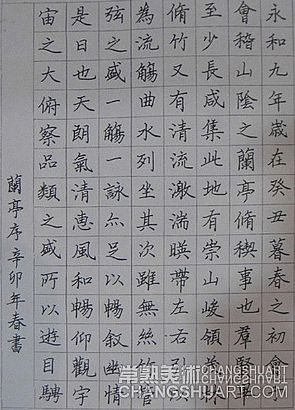 永和九年歲在癸丑暮春之初會
會稽山陰之蘭亭脩禊事也羣賢
至少長咸集此地有崇山峻領茂
脩竹又有清流激湍暎帶左右引
為流觴曲水列坐其次雖無絲竹管
弦之盛一觴一詠亦足以暢敘幽情
是日也天朗氣清惠風和暢仰觀宇
宙之大俯察品類之盛所以遊目騁
蘭亭序辛卯年春書
常熟美術网
CHANGSHUART.COM